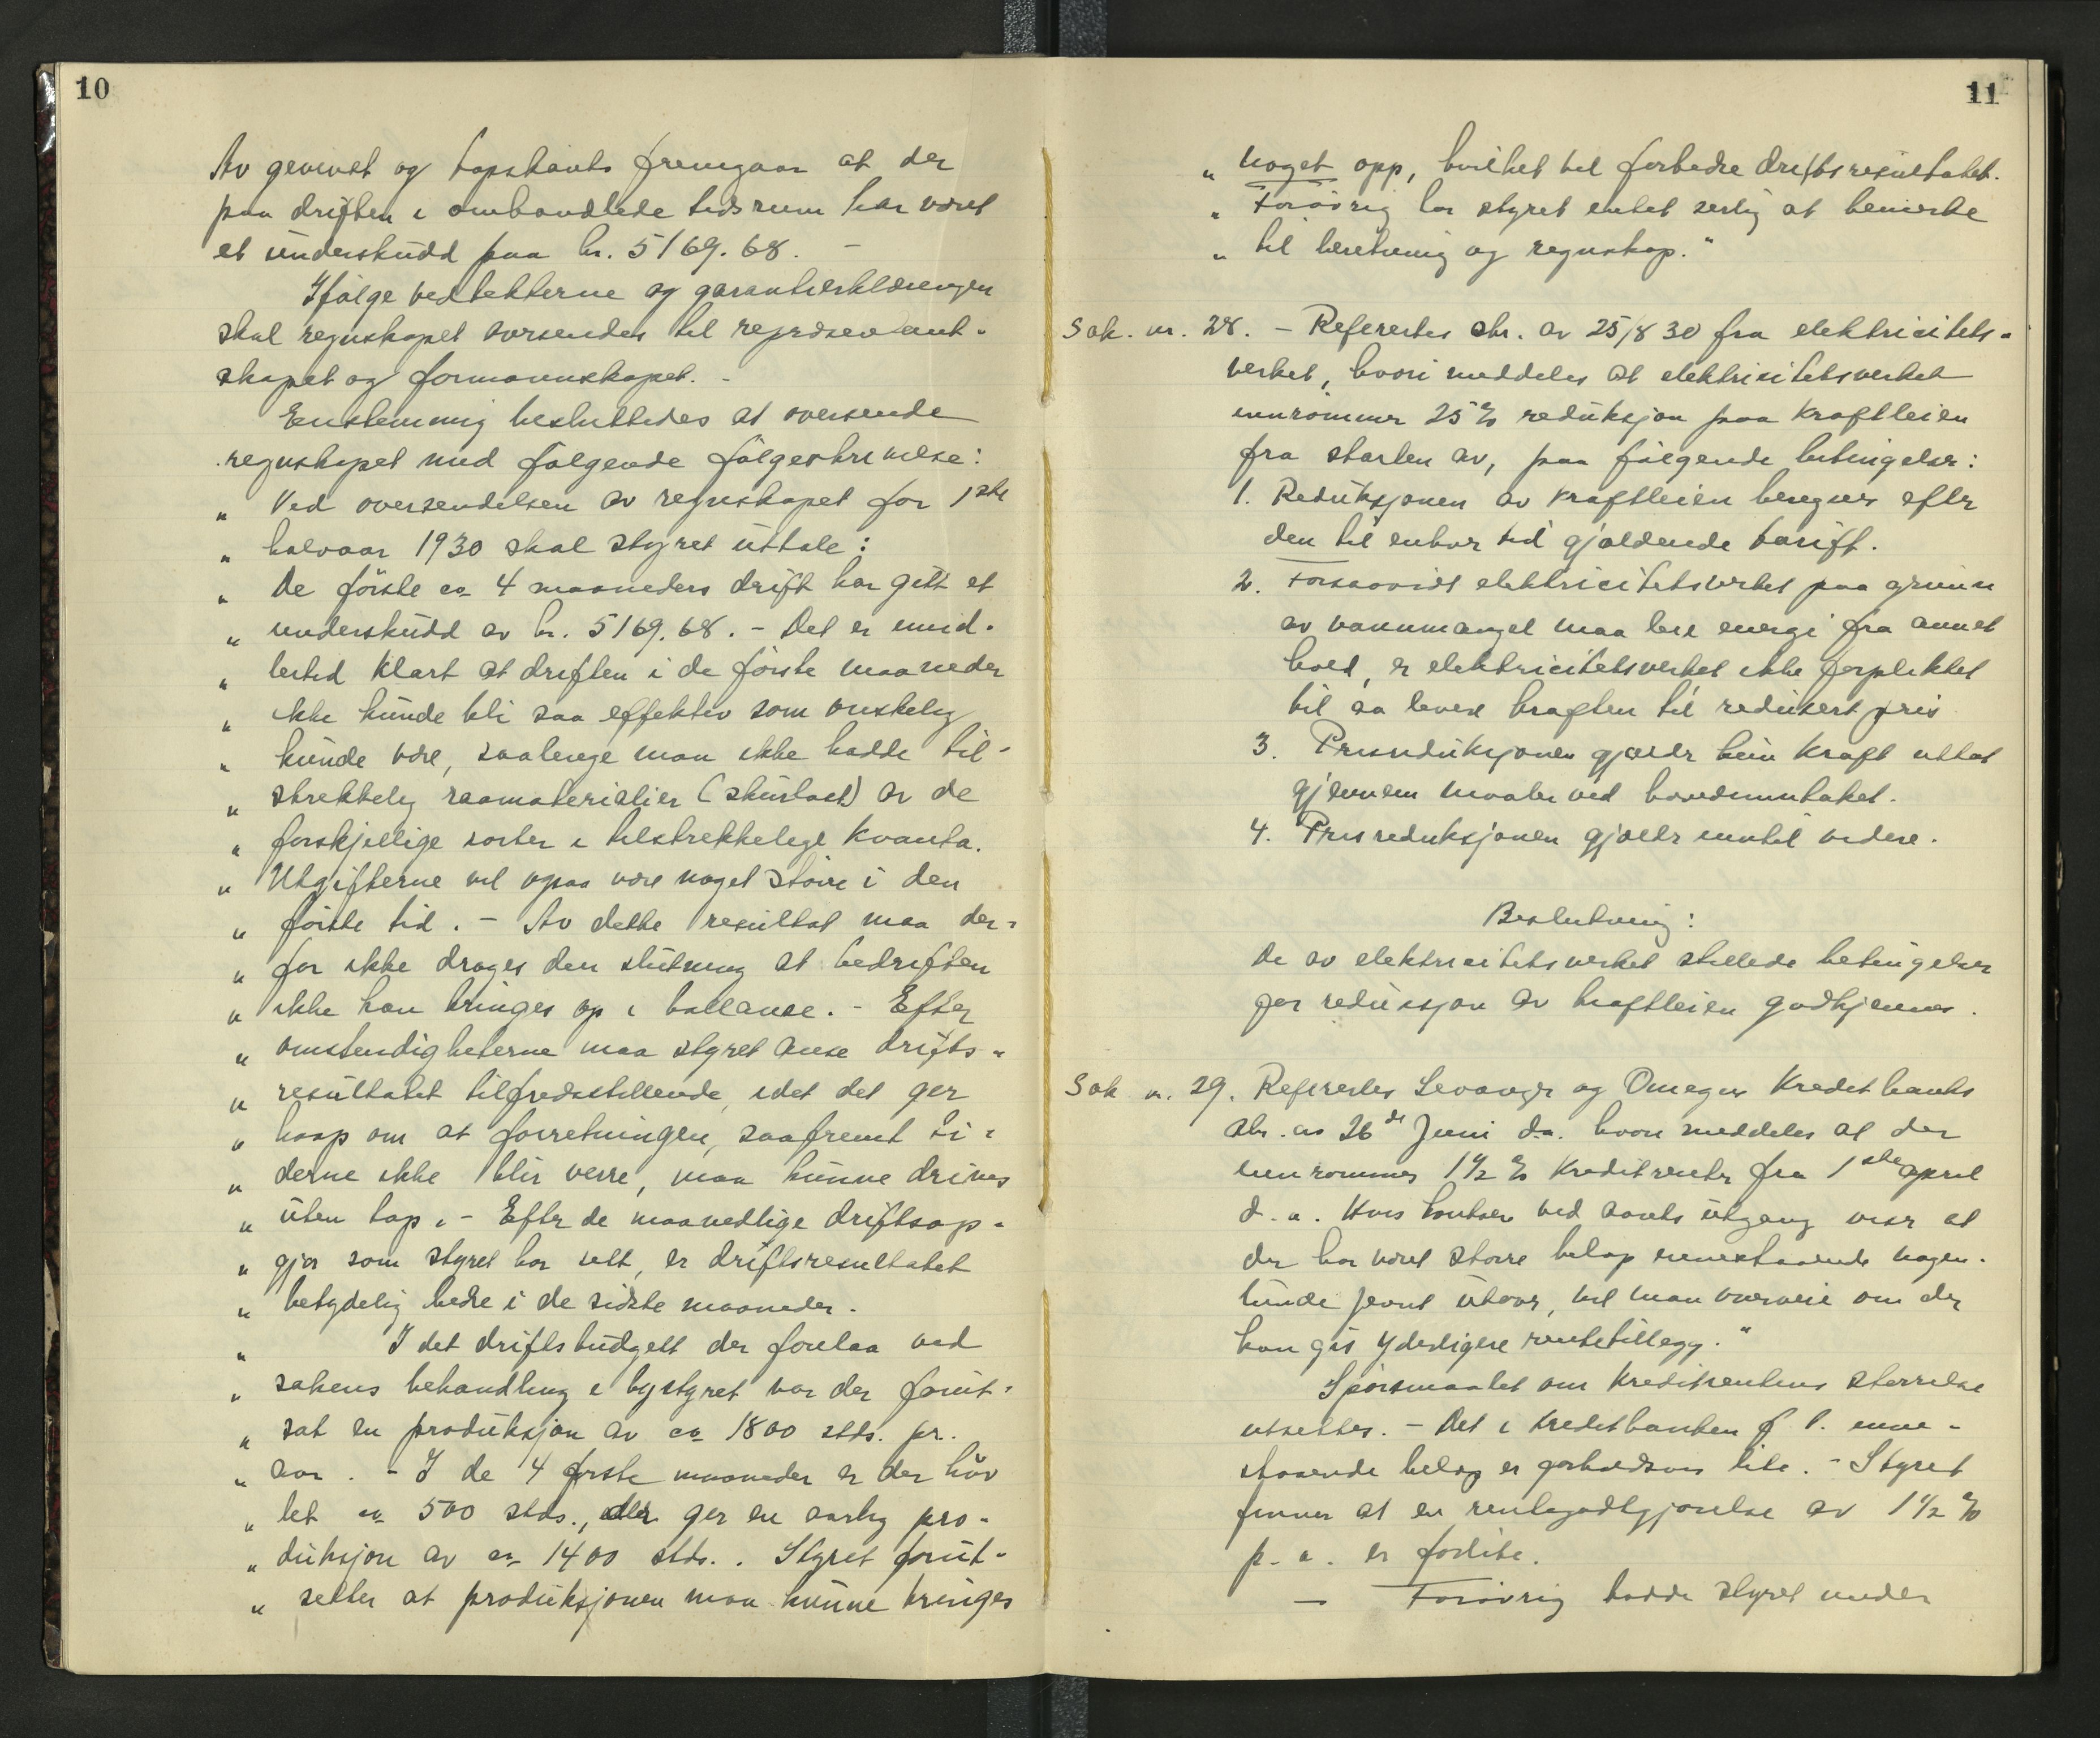 10
Av gevinst og tapskonto fremgaar at der
paa driften i omhandlede tidsrum har været
et underskudd paa kr. 5169.68. -
Ifølge vedtekterne og garantierklæringen
skal regnskapet oversendes til representant-
skapet og formannskapet. -
Enstemmig besluttedes at oversende
regnskapet med følgende følgeskrivelse:
" Ved oversendelsen av regnskapet for 1ste
" halvaar 1930 skal styret uttale:
" De første ca 4 maaneders drift har gitt et
" underskudd av kr. 5169.68. - Det er imid-
" lertid klart at driften i de første maaneder
" ikke kunde bli saa effektiv som ønskelig
" kunde være, saalenge man ikke hadde til-
" strekkelig raamaterialier (skurlast) av de
" forskjellige sorter i tilstrekkelige kvanta.
" Utgifterne vil ogsaa være noget større i den
" første tid. - Av dette resultat maa der-
" for ikke drages den slutning at bedriften
" ikke kan bringes op i ballanse. - Efter
" omstendigheterne maa styret anse drifts-
" resultatet tilfredsstillende, idet det ger
" haap om at forretningen, saafremt ti-
" derne ikke blir verre, maa kunne drives
" uten tap. - Efter de maanedlige driftsop-
" gjør som styret har sett, er driftsresultatet
" betydelig bedre i de sidste maaneder.
" I det driftsbudgett der forelaa ved
" sakens behandling i bystyret var der forut-
" sat en produksjon av ca 1800 stds. pr.
" aar. - I de 4 første maaneder er der høv
" let ca 500 stds., der ger en aarlig pro-
" duksjon av ca 1400 stds.. Styret forut-
" setter at produksjonen maa kunne bringes
11
" noget opp, hvilket vil forbedre driftsresultatet.
" Forøvrig har styret intet serlig at bemerke
" til beretning og regnskap."
Sak. nr. 28. - Refereertes skr. av 25/8 30 fra elektricitets-
verket, hvori meddeles at elektricitetsverket
innrømmer 25% reduksjon paa kraftleien
fra starten av, paa følgende betingelser:
1. Reduksjonen av kraftleien beregnes efter
den til enhver tid gjældende tariff.
2. Forsaavidt elektricitetsverket paa grunn
av vannmangel maa leie energi fra annet
hold, er elektricitetsverket ikke forpliktet
til aa levere kraften til redusert pris
3. Prisreduksjonen gjælder kun kraft uttat
gjennem maaler ved hovedinntaket.
4. Prisreduksjonen gjælder inntil videre.
Beslutning:
De av elektricitetsverket stillede betingelser
for reduksjon av kraftleien godkjennes.
Sak n. 29. Refererertes Levanger og Omegns Kreditbanks
skr. av 26de Juni d.a. hvori meddeles at der
innrømmes 1½ % Kreditrente fra 1ste april
d.a. Hvis kontoen ved aarets utgang viser at
der har været større beløp innestaaende nogen-
lunde jevnt utover, vil man overveie om der
kan gis yderligere rentetillegg."
Spørsmaalet om Kreditrentens størrelse
utsettes. - Det i Kreditbanken f. t. inne-
staaende beløp er forholdsvis lite. - Styret
finner at en rentegodtgjørelse av 1½ %
p.a. er forlite.
- Forøvrig hadde styret under